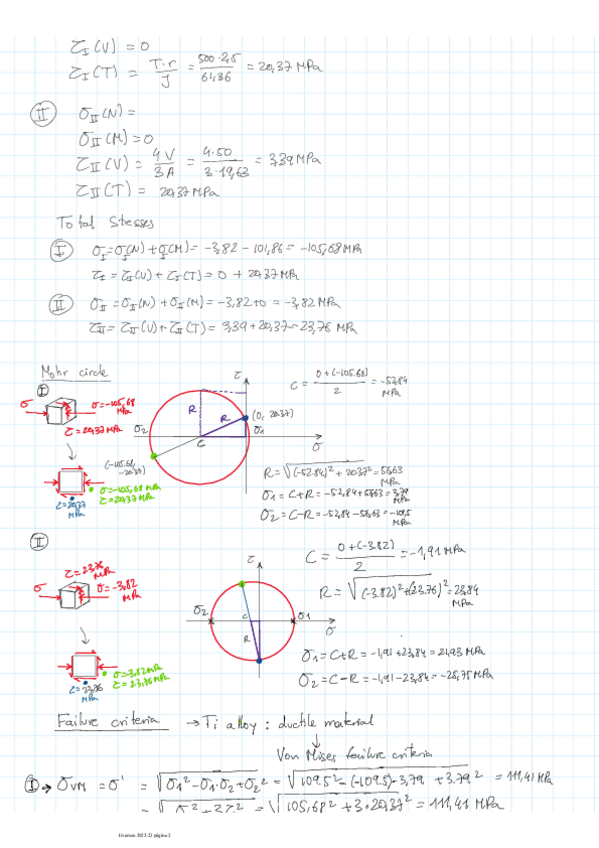 τI(V) = 0
τI(T) = T·r / J = 500·2,5 / 61,36 = 20,37 MPa
II σII(N) =
σII(M) = 0
τII(V) = 4V / 3A = 4·50 / 3·19,63 = 3,39 MPa
τII(T) = 20,37 MPa
Total Stresses
I σI = σI(N) + σI(M) = -3,82 - 101,86 = -105,68 MPa
τI = τI(V) + τI(T) = 0 + 20,37 MPa
II σII = σII(N) + σII(M) = -3,82 + 0 = -3,82 MPa
τII = τII(V) + τII(T) = 3,39 + 20,37 = 23,76 MPa
Mohr circle
I
σ σ=-105,68 MPa
τ = 20,37 MPa
σ=-105,68 MPa
τ=20,37 MPa
τ=20,37 MPa
τ
R R
(0, 20,37)
σ2 σ1
C σ
(-105,68, -20,37)
C = 0+(-105,68) / 2 = -52,84 MPa
R = √(-52,84)² + 20,37² = 56,63 MPa
σ1 = C+R = -52,84+56,63 = 3,79 MPa
σ2 = C-R = -52,84-56,63 = -109,5 MPa
II
τ=23,76 MPa
σ σ=-3,82 MPa
σ=-3,82 MPa
τ=23,76 MPa
τ=23,76 MPa
τ
σ2 C σ1
R σ
C = 0+(-3,82) / 2 = -1,91 MPa
R = √(-3,82)²+(23,76)² = 23,84 MPa
σ1 = C+R = -1,91+23,84 = 21,93 MPa
σ2 = C-R = -1,91-23,84 = -25,75 MPa
Failure criteria → Ti alloy : ductile material
Von Mises failure criteria
I → σVM = σ' = √σ1² - σ1·σ2 + σ2² = √109,5² - (-109,5)·3,79 + 3,79² = 111,41 MPa
= √σ² + 3τ² = √105,68² + 3·20,37² = 111,41 MPa